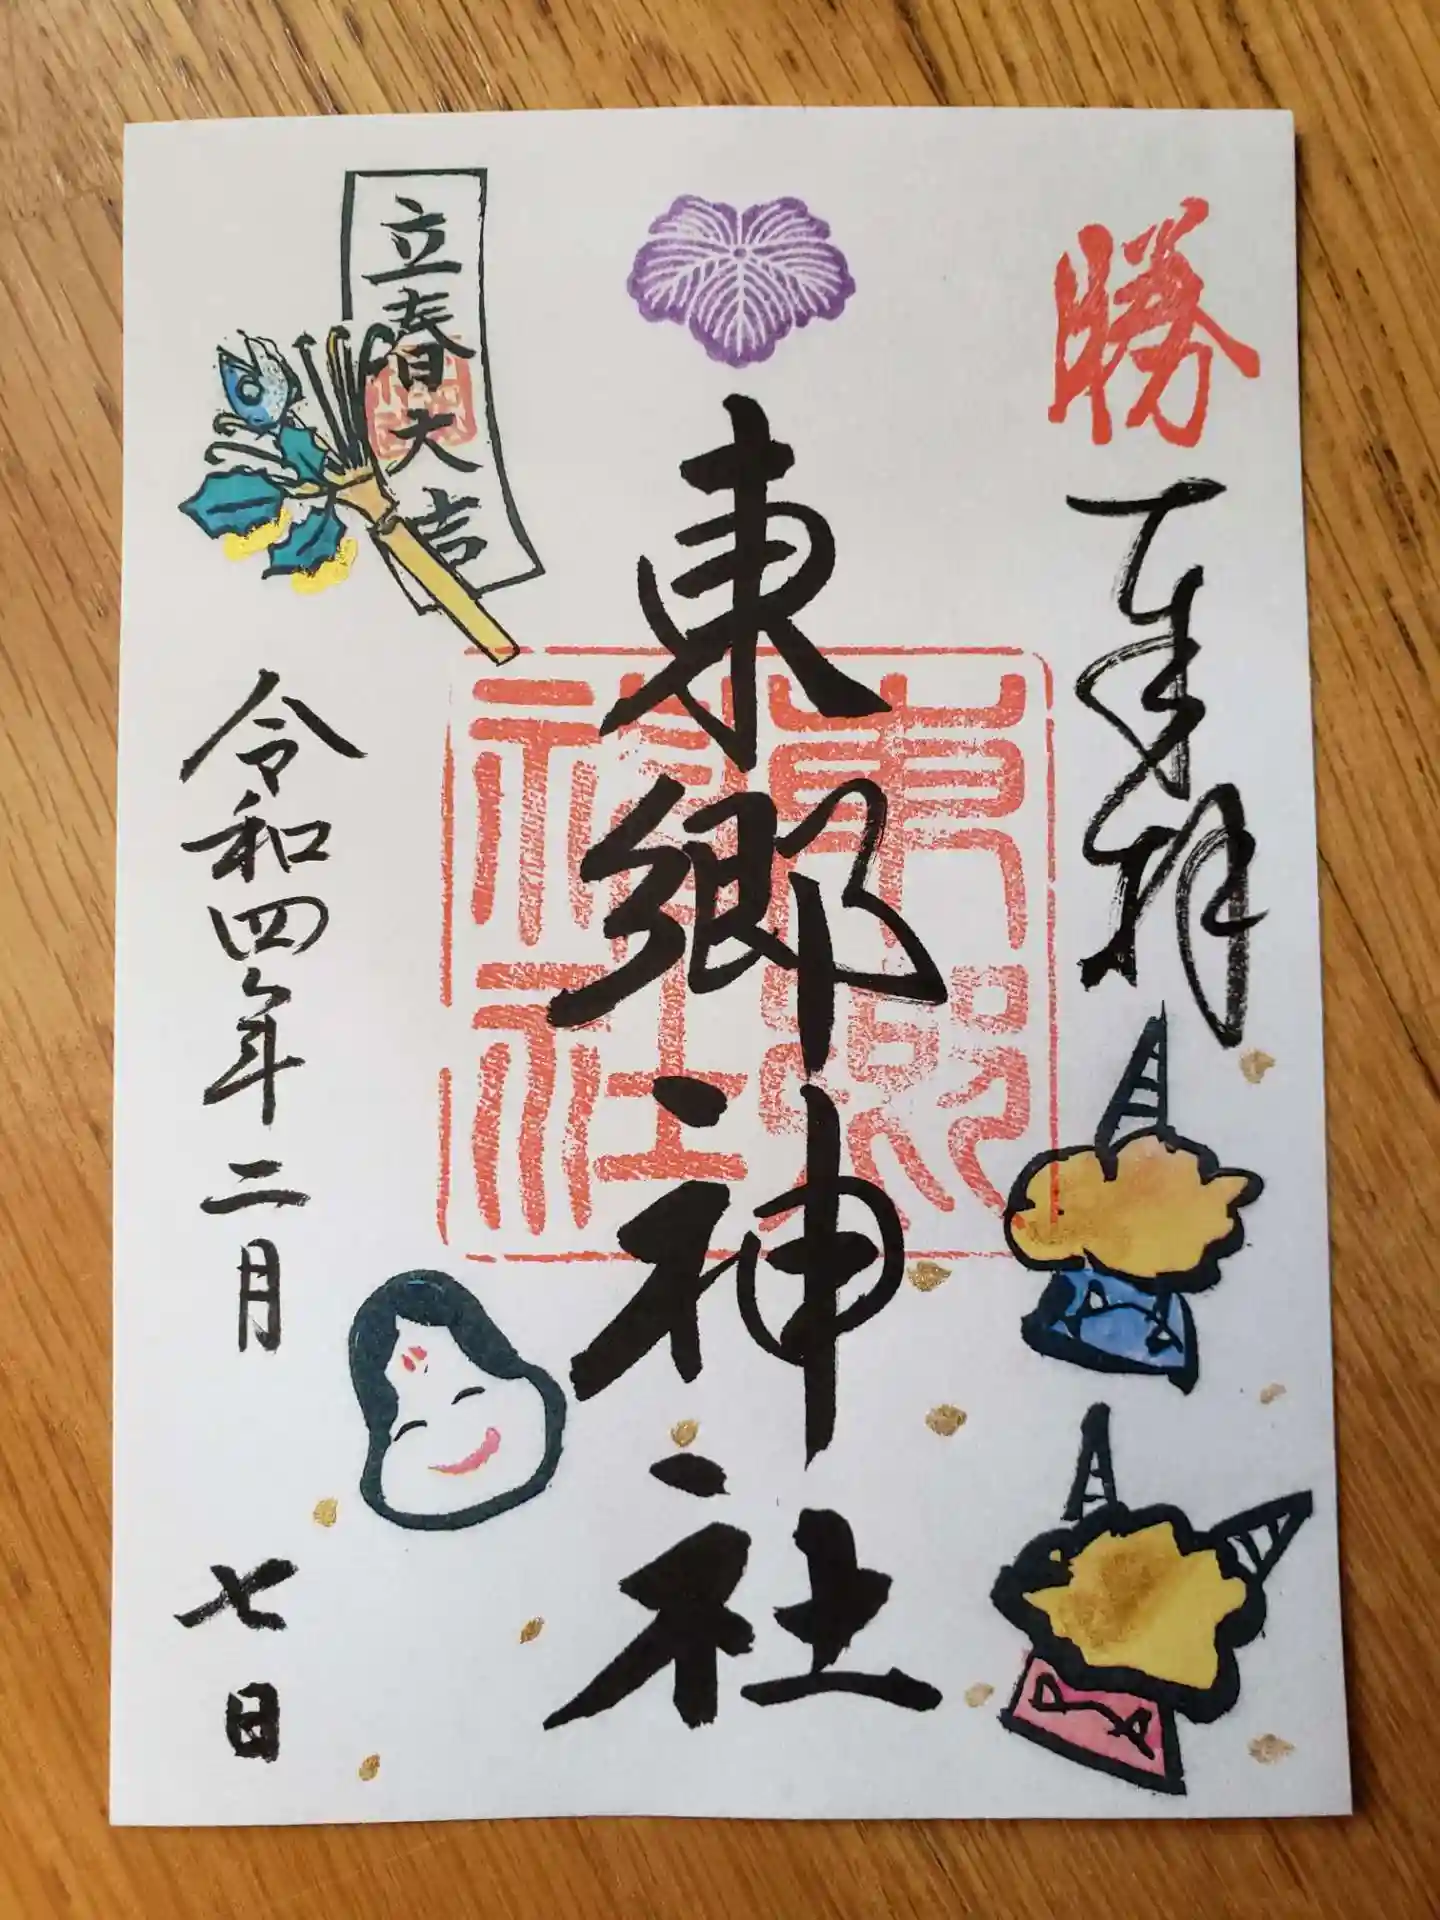 勝
奉拝
東郷神社
東郷神社
立春大吉
令和四年二月七日